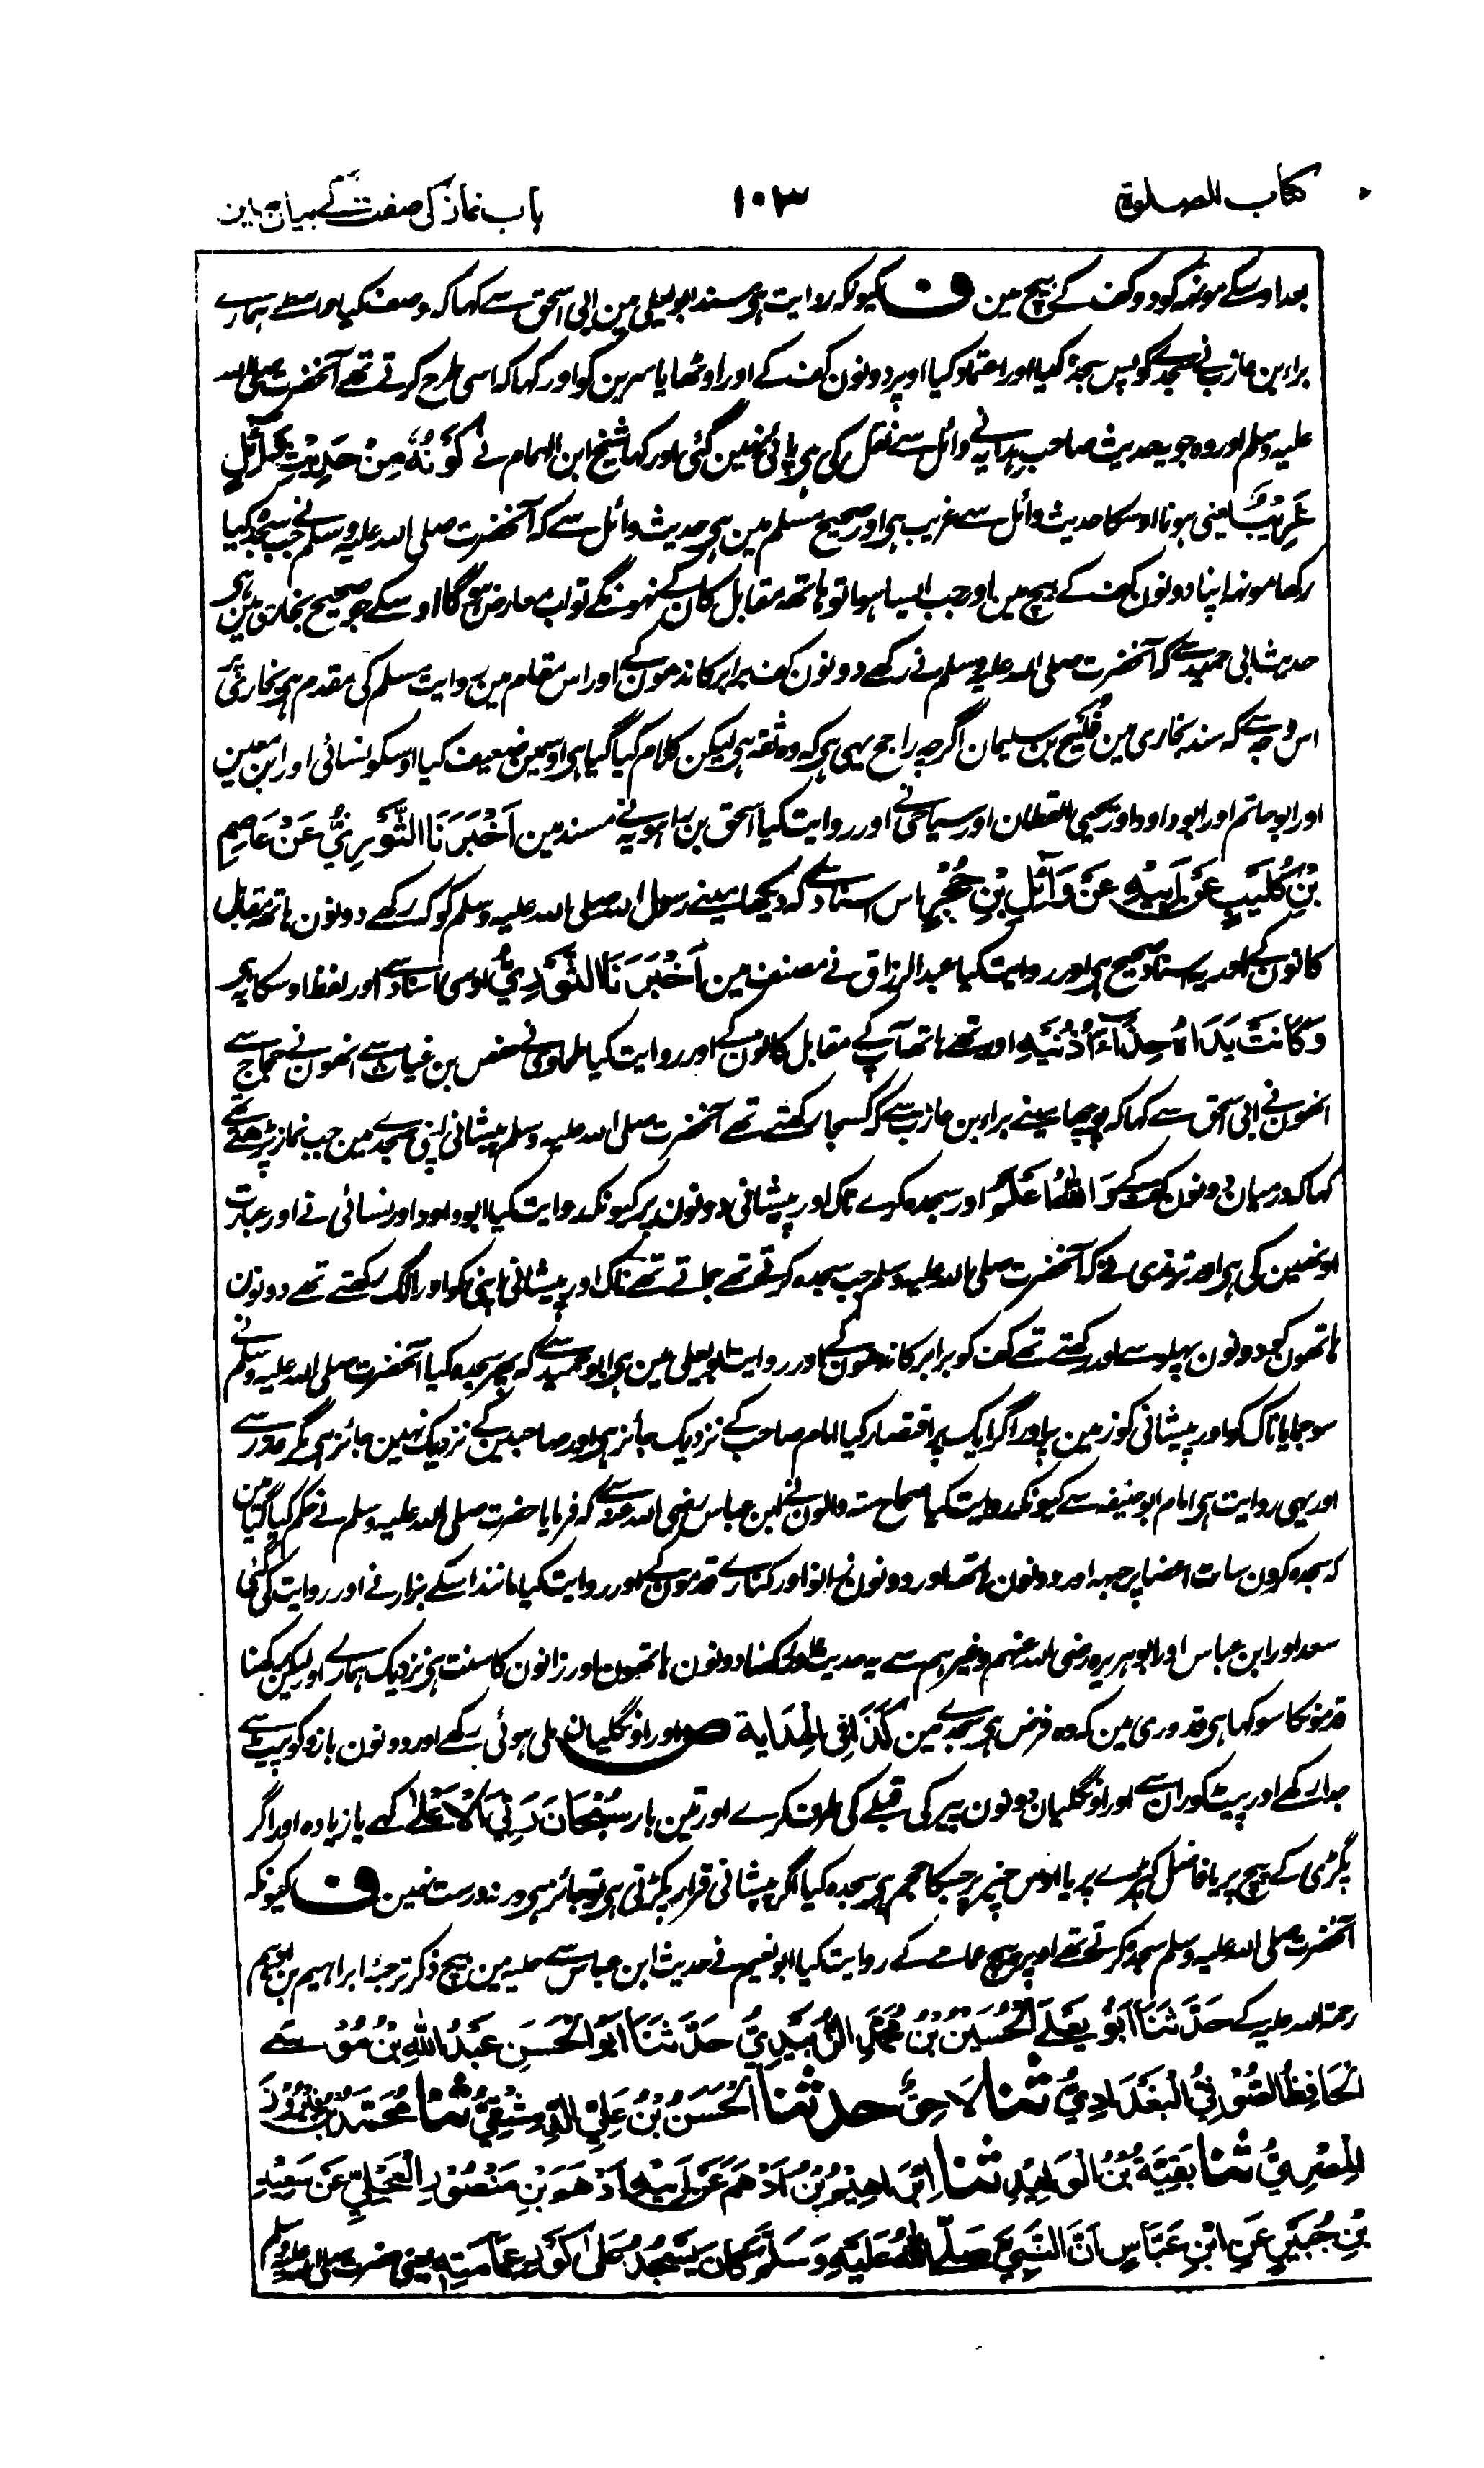 کتاب الصلوة ۱۰۳ باب نماز کی صفت کے بیان مین
بعد اوسکے مونہہ کو دو کف کے بیچ مین ف کیونکہ روایت ہی مسند ابو یعلی مین ابی اسحق سے کہا کہ وصف کیا واسطے ہمارے
براء بن عازب نے سجدے کو پس سجدہ کیا اور اعتماد کیا اوپر دونون کف کے اور اوٹھایا سرین کو اور کہا کہ اسی طرح کرتے تھے آنحضرت صلی اللہ
علیہ وسلم اور وہ جو یہ حدیث صاحب ہدایہ نے وائل سے نقل کی ہی پائی نہین گئی اور کہا شیخ ابن الہمام نے کَوْنُهٗ مِنْ حَدِیْثِ وَائِلٍ
غَرِیْبٌ یعنی ہونا اوسکا حدیث وائل سے غریب ہی اور صحیح مسلم مین ہی حدیث وائل سے کہ آنحضرت صلی اللہ علیہ وسلم نے جب سجدہ کیا
رکھا مونہہ اپنا دونون کف کے بیچ مین اور جب ایسا ہوا تو ہاتھ مقابل کان کے نہونگے تو اب معارض ہوگا اوسکے جو صحیح بخاری مین ہی
حدیث ابی حمید سے کہ آنحضرت صلی اللہ علیہ وسلم نے رکھے دونون کف برابر کاندھون کے اور اس مقام مین روایت مسلم کی مقدم ہی بخاری پر
اس وجہ سے کہ سند بخاری مین فُلَیْح بن سلیمان اگرچہ راجح یہی ہی کہ وہ ثقہ ہی لیکن کلام کیا گیا ہی اوسمین ضعیف کیا اوسکو نسائی اور ابن معین
اور ابو حاتم اور ابو داود اور یحیی القطان اور ساجی نے اور روایت کیا اسحق بن راہویہ نے مسند مین اَخْبَرَنَا الثَّوْرِیُّ عَنْ عَاصِمِ
بْنِ کُلَیْبٍ عَنْ اَبِیْهِ عَنْ وَائِلِ بْنِ حُجْرٍ اس اسناد سے کہ دیکھا مینے رسول اللہ صلی اللہ علیہ وسلم کو کہ رکھے دونون ہاتھ مقابل
کانون کے اور یہ اسناد صحیح ہی اور روایت کیا عبد الرزاق نے مصنف مین اَخْبَرَنَا الثَّوْرِیُّ اوسی اسناد سے اور لفظ اوسکا یہ ہی
وَکَانَتْ یَدَاهُ حِذَاءَ اُذُنَیْهِ اور تھے ہاتھ آپ کے مقابل کانون کے اور روایت کیا طحاوی نے حفص بن غیاث سے انھون نے حجاج سے
انھون نے ابی اسحق سے کہا کہ پوچھا مینے براء بن عازب سے کہ کسجا رکھتے تھے آنحضرت صلی اللہ علیہ وسلم پیشانی اپنی سجدے مین جب نماز پڑھتے تھے
کہا کہ درمیان دونون کف کے وَاللّٰهُ اَعْلَمُ اور سجدہ کرے ناک اور پیشانی دونون پر کیونکہ روایت کیا ابو داود اور نسائی نے اور عبارت
اونھین کی ہی اور ترمذی نے کہ آنحضرت صلی اللہ علیہ وسلم جب سجدہ کرتے تھے جماتے تھے ناک اور پیشانی اپنی کو اور الگ رکھتے تھے دونون
ہاتھون کو دونون پہلو سے اور رکھتے تھے کف کو برابر کاندھون کے اور روایت ابو یعلی مین ہی ابو حمید سے کہ پھر سجدہ کیا آنحضرت صلی اللہ علیہ وسلم نے
سو جمایا ناک کو اور پیشانی کو زمین پر اور اگر ایک پر اقتصار کیا امام صاحب کے نزدیک جائز ہی اور صاحبین کے نزدیک نہین جائز ہی مگر عذر سے
اور یہی روایت ہی امام ابو حنیفہ سے کیونکہ روایت کیا صحاح ستہ والون نے ابن عباس رضی اللہ عنہ سے کہ فرمایا حضرت صلی اللہ علیہ وسلم نے حکم کیا گیا مین
کہ سجدہ کرون سات اعضا پر جبہہ اور دونون ہاتھ اور دونون زانو اور کنارے قدمون کے اور روایت کیا مانند اسکے بزار نے اور روایت کی گئی
سعد اور ابن عباس اور ابو ہریرہ رضی اللہ عنہم وغیرہم سے یہ حدیث اور رکھنا دونون ہاتھون اور زانون کا سنت ہی نزدیک ہمارے اور لیکن رکھنا
قدمونکا سو کہا ہی قدوری مین کہ وہ فرض ہی سجدے مین کَذَا فِی الْهِدَایَة ص اور اونگلیان ملی ہوئی رکھے اور دونون بازو کو پیٹ سے
جدا رکھے اور پیٹ کو ران سے اور اونگلیان دونون پیر کی قبلے کی طرف کرے اور تین بار سُبْحَانَ رَبِّیَ الْاَعْلٰی کہے یا زیادہ اور اگر
پگڑی کے پیچ پر یا فاضل کپڑے پر یا اوس چیز پر جسکا حجم ہی سجدہ کیا اگر پیشانی قرار پکڑتی ہی تو جائز ہی ورنہ درست نہین ف کیونکہ
آنحضرت صلی اللہ علیہ وسلم سجدہ کرتے تھے اوپر پیچ عمامے کے روایت کیا ابو نعیم نے حدیث ابن عباس سے حلیہ مین بیچ ذکر ترجمۂ ابراہیم بن ادہم
رحمة اللہ علیہ کے حَدَّثَنَا اَبُوْ یَعْلَی الْحُسَیْنُ بْنُ مُحَمَّدٍ الزُّبَیْدِیُّ حَدَّثَنَا اَبُو الْحَسَنِ عَبْدُ اللّٰهِ بْنُ مُوْسٰی
الْحَافِظُ الصُّوْفِیُّ الْبَغْدَادِیُّ ثنا لَاحِقٌ حدثنا الْحَسَنُ بْنُ عَلِیٍّ الدِّمَشْقِیُّ ثنا مُحَمَّدُ بْنُ فَیْرُوْزَ
الْمِصْرِیُّ ثنا بَقِیَّةُ بْنُ الْوَلِیْدِ ثنا اِبْرَاهِیْمُ بْنُ اَدْهَمَ عَنْ اَبِیْهِ اَدْهَمَ بْنِ مَنْصُوْرٍ الْعِجْلِیِّ عَنْ سَعِیْدِ
بْنِ جُبَیْرٍ عَنِ ابْنِ عَبَّاسٍ اَنَّ النَّبِیَّ صَلَّی اللّٰهُ عَلَیْهِ وَسَلَّمَ کَانَ یَسْجُدُ عَلٰی کَوْرِ عِمَامَتِهٖ یعنی حضرت صلی اللہ علیہ وسلم